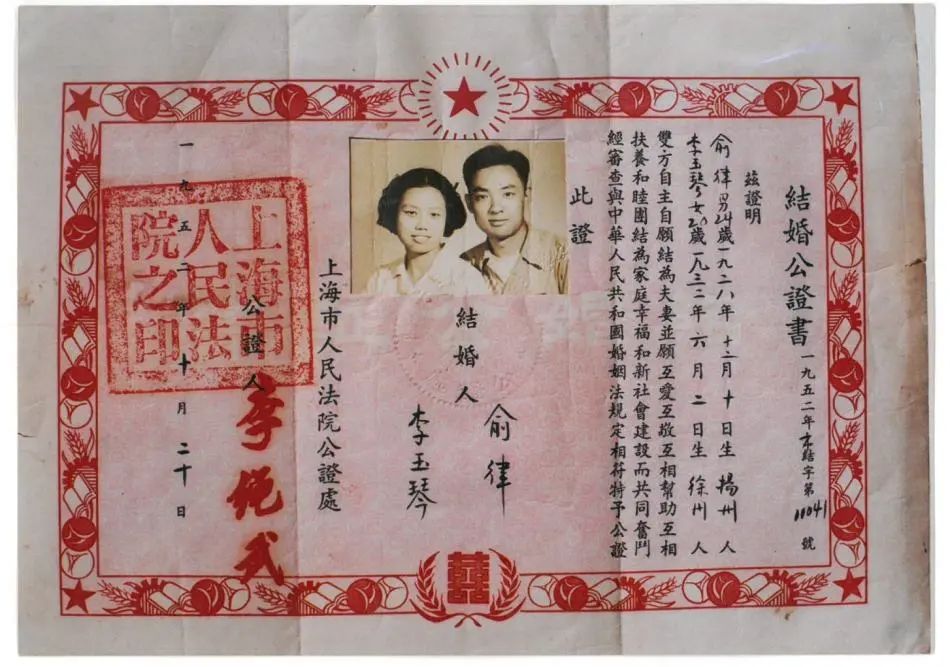 結婚公證書 一九五二年字第11041號
茲證明
俞律男24歲一九二八年十二月十日生揚州人
李玉琴女20歲一九三二年六月二日生徐州人
雙方自主自願結為夫妻並願互愛互敬互相幫助互相
扶養和睦團結為家庭幸福和新社會建設而共同奮鬥
經審查與中華人民共和國婚姻法規定相符特予公證
此證
結婚人
俞律
李玉琴
上海市人民法院公證處
公證人
一九五二年十月二十日
上海市人民法院之印
囍